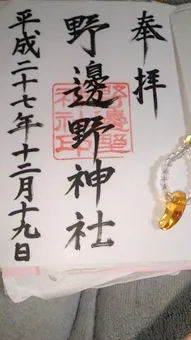 奉拝
野邊野神社
平成二十七年十二月十九日